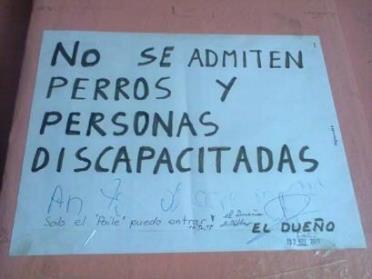 NO SE ADMITEN
PERROS Y
PERSONAS
DISCAPACITADAS
Solo el "Paile" puede entrar
el Dueño
EL DUEÑO